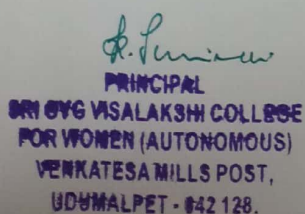 PRINCIPAL
SRI GVG VISALAKSHI COLLEGE
FOR WOMEN (AUTONOMOUS)
VENKATESA MILLS POST,
UDUMALPET - 642 128.